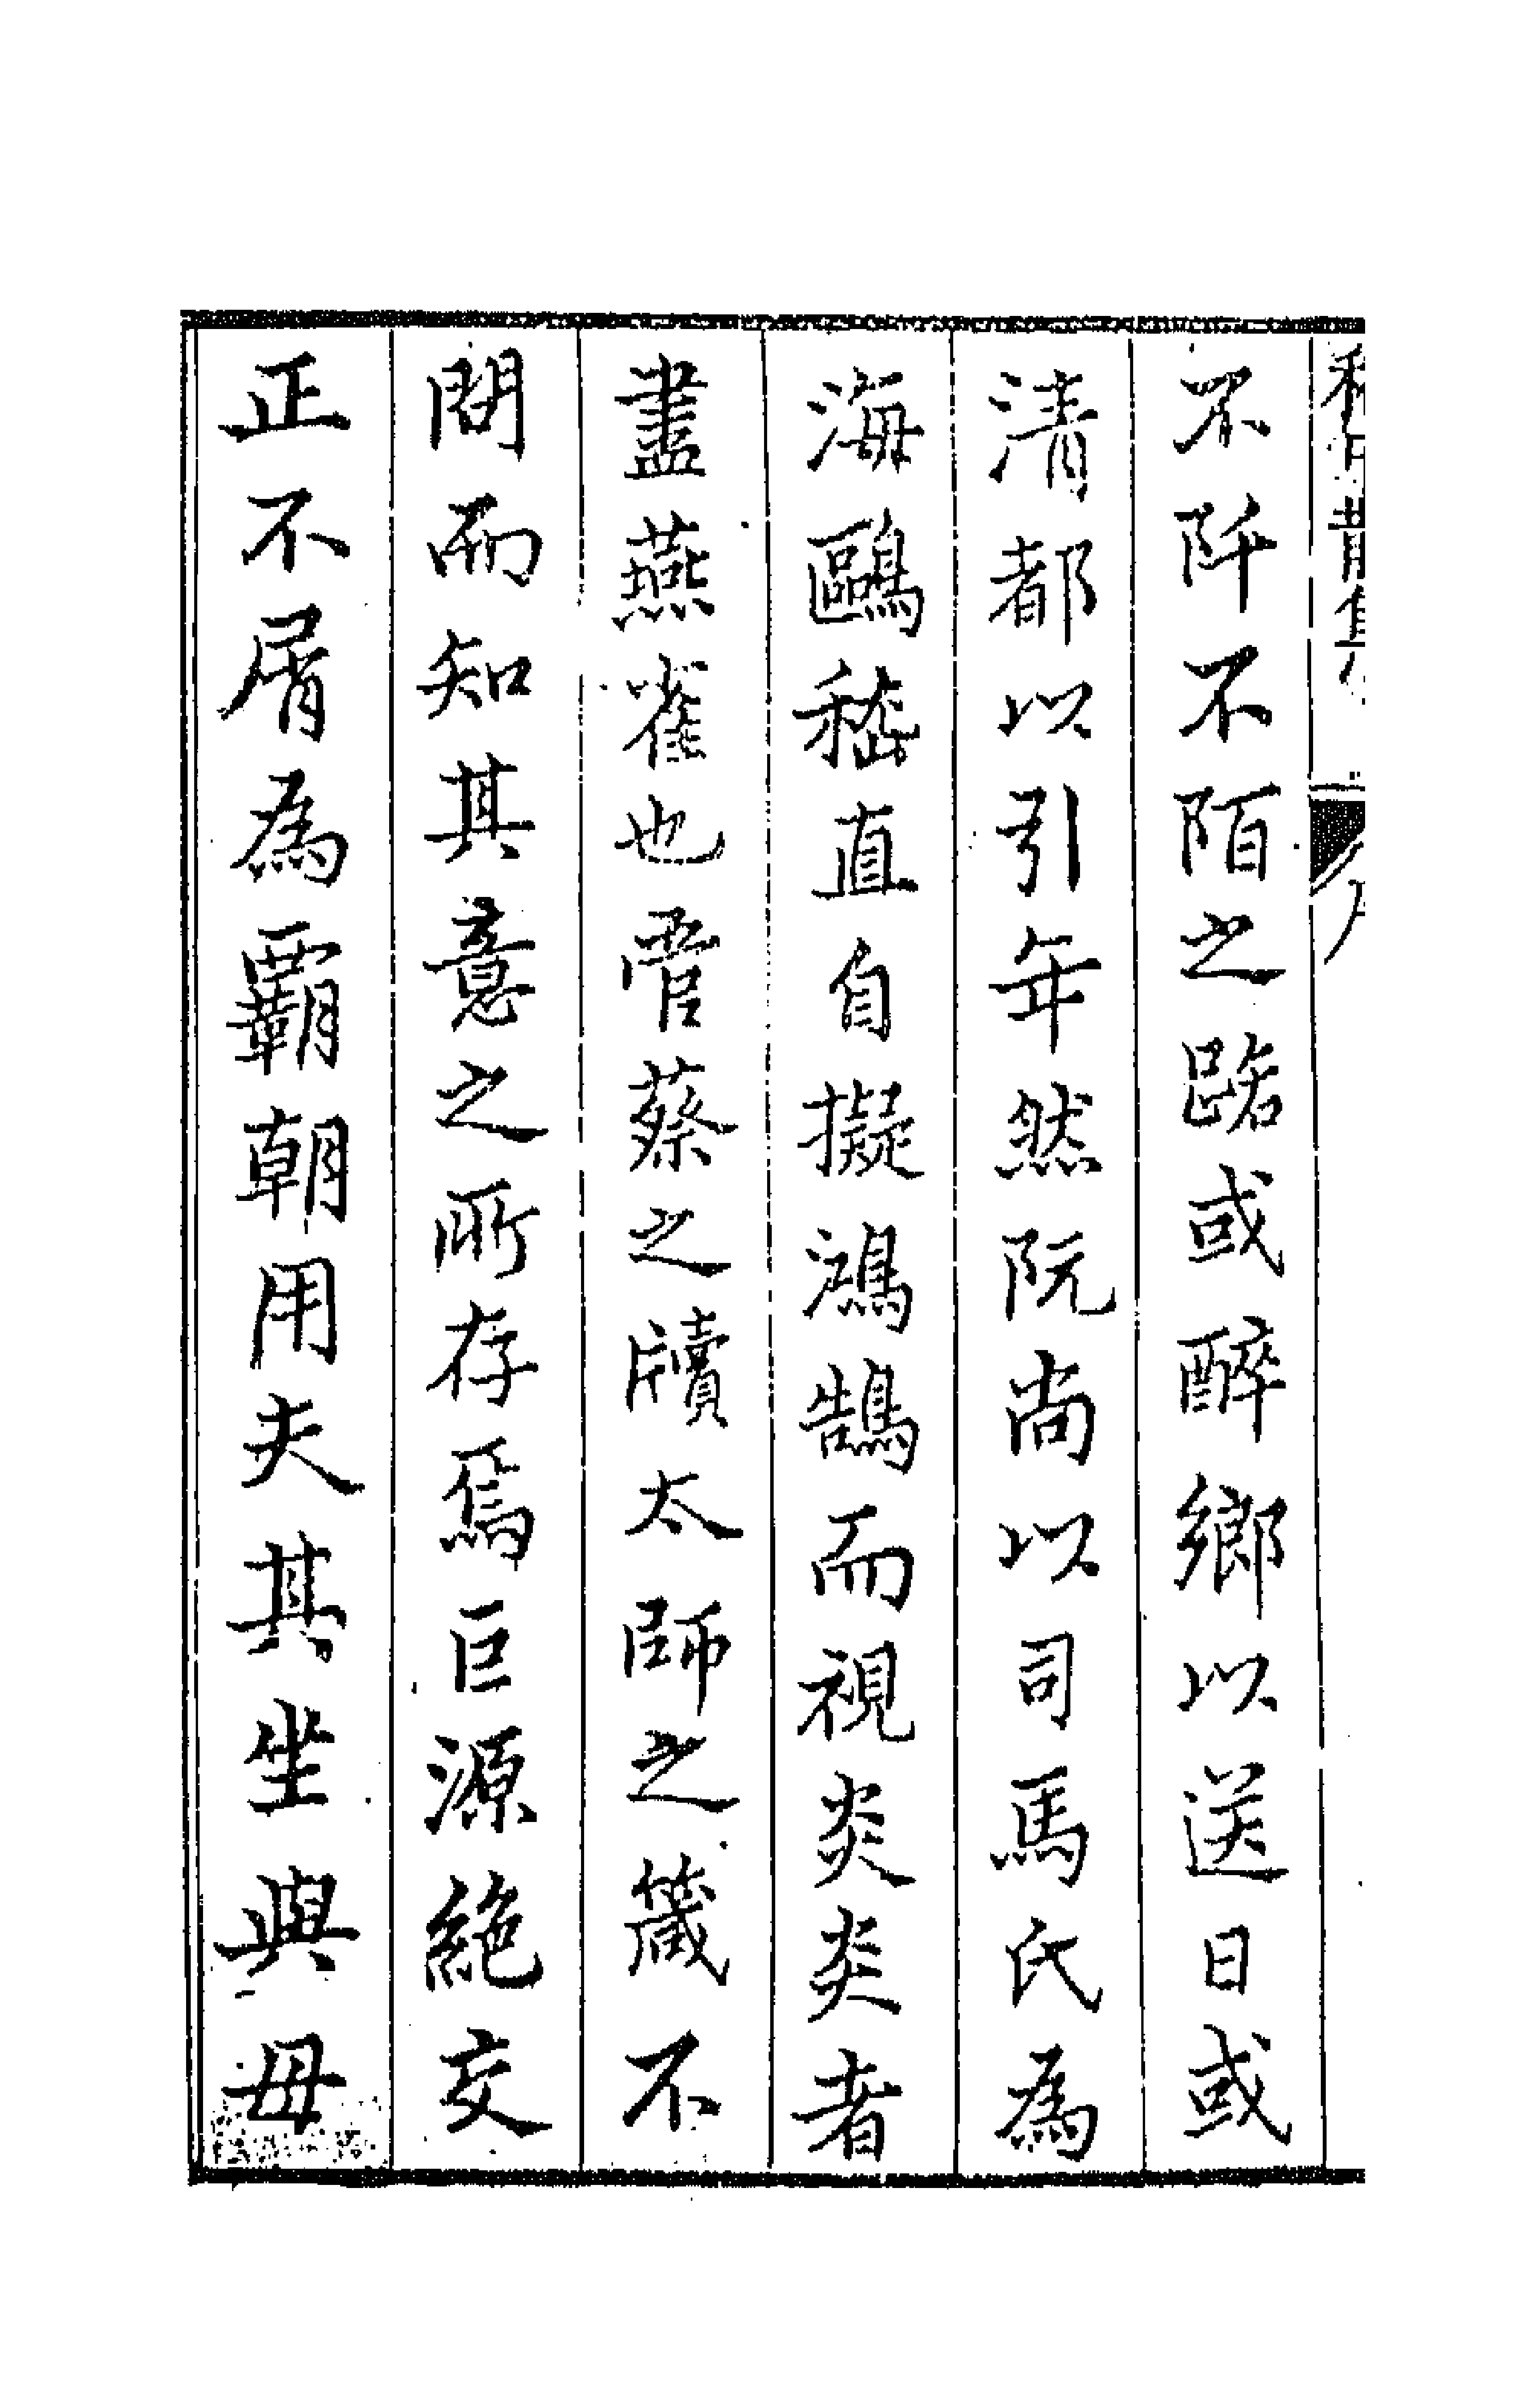 不阡不陌之踞或醉鄉以送日或
清都以引年然阮尚以司馬氏為
海鷗嵇直自擬鴻鵠而視炎炎者
盡燕雀也管蔡之牘太師之箴不
問而知其意之所存焉巨源絕交
正不屑為霸朝用夫其坐與毋